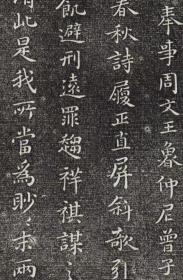 奉事周文王魯仲尼曾子
春秋詩履正直屏斜欹引
飢避刑遠罪趨祥祺謀
此是我所當爲眇〻未兩